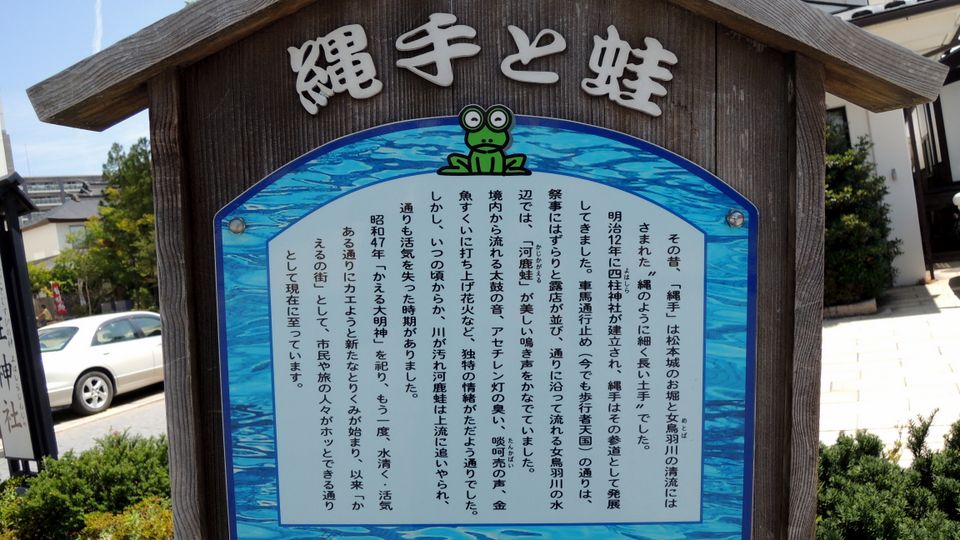 縄手と蛙
その昔、「縄手」は松本城のお堀と女鳥羽川の清流には
めとば
さまれた〝縄のように細く長い土手〟でした。
明治12年に四柱神社が建立され、縄手はその参道として発展
よはしら
してきました。車馬通行止め（今でも歩行者天国）の通りは、
祭事にはずらりと露店が並び、通りに沿って流れる女鳥羽川の水
辺では、「河鹿蛙」が美しい鳴き声をかなでていました。
かじかがえる
境内から流れる太鼓の音、アセチレン灯の臭い、啖呵売の声、金
たんかばい
魚すくいに打ち上げ花火など、独特の情緒がただよう通りでした。
しかし、いつの頃からか、川が汚れ河鹿蛙は上流に追いやられ、
通りも活気を失った時期がありました。
昭和47年「かえる大明神」を祀り、もう一度、水清く・活気
ある通りにカエようと新たなとりくみが始まり、以来「か
えるの街」として、市民や旅の人々がホッとできる通り
として現在に至っています。
神社